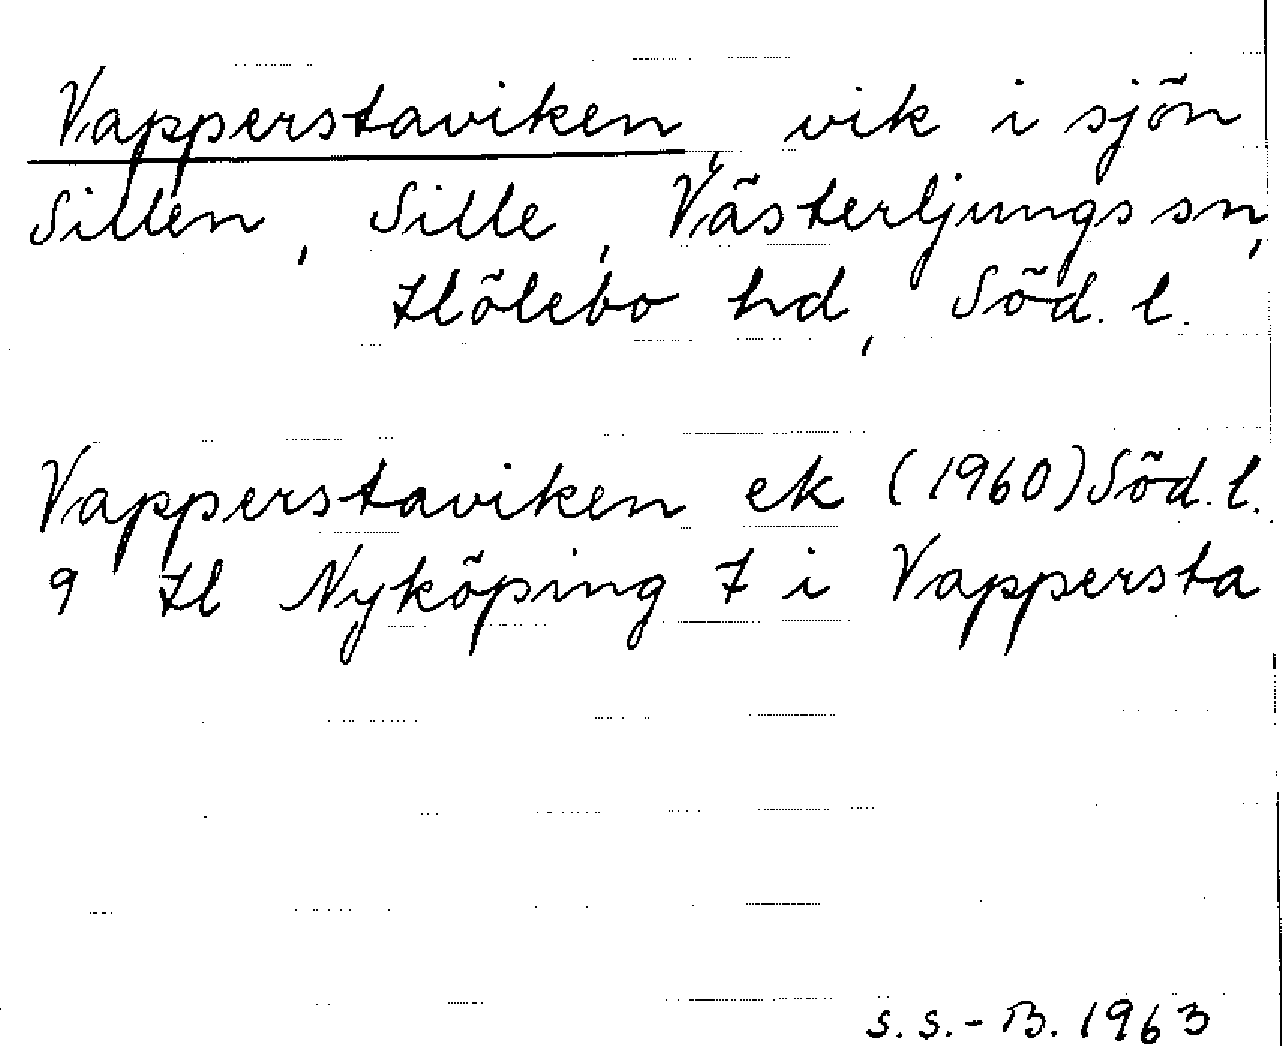 Vapperstaviken, vik i sjön
Sillen, Sille, Västerljungs sn,
Hölebo hd, Söd. l.
Vapperstaviken ek (1960) Söd. l.
9 H Nyköping 7 i Vappersta
S. S. - B. 1963